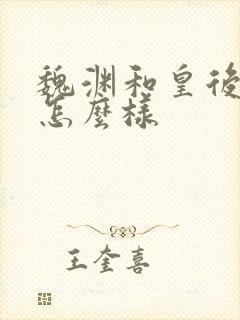 魏渊和皇後
怎麼樣
王奎喜